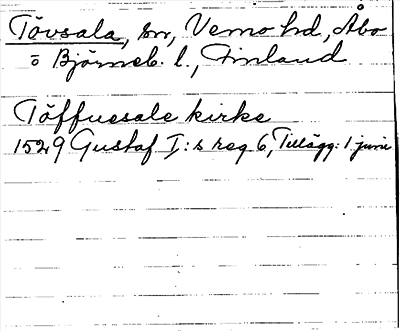 Tövsala, sn, Vemo hd, Åbo
o Björneb. l., Finland
Töffuesale kirke
1529 Gustaf I:s reg 6, Tillägg: 1 juni